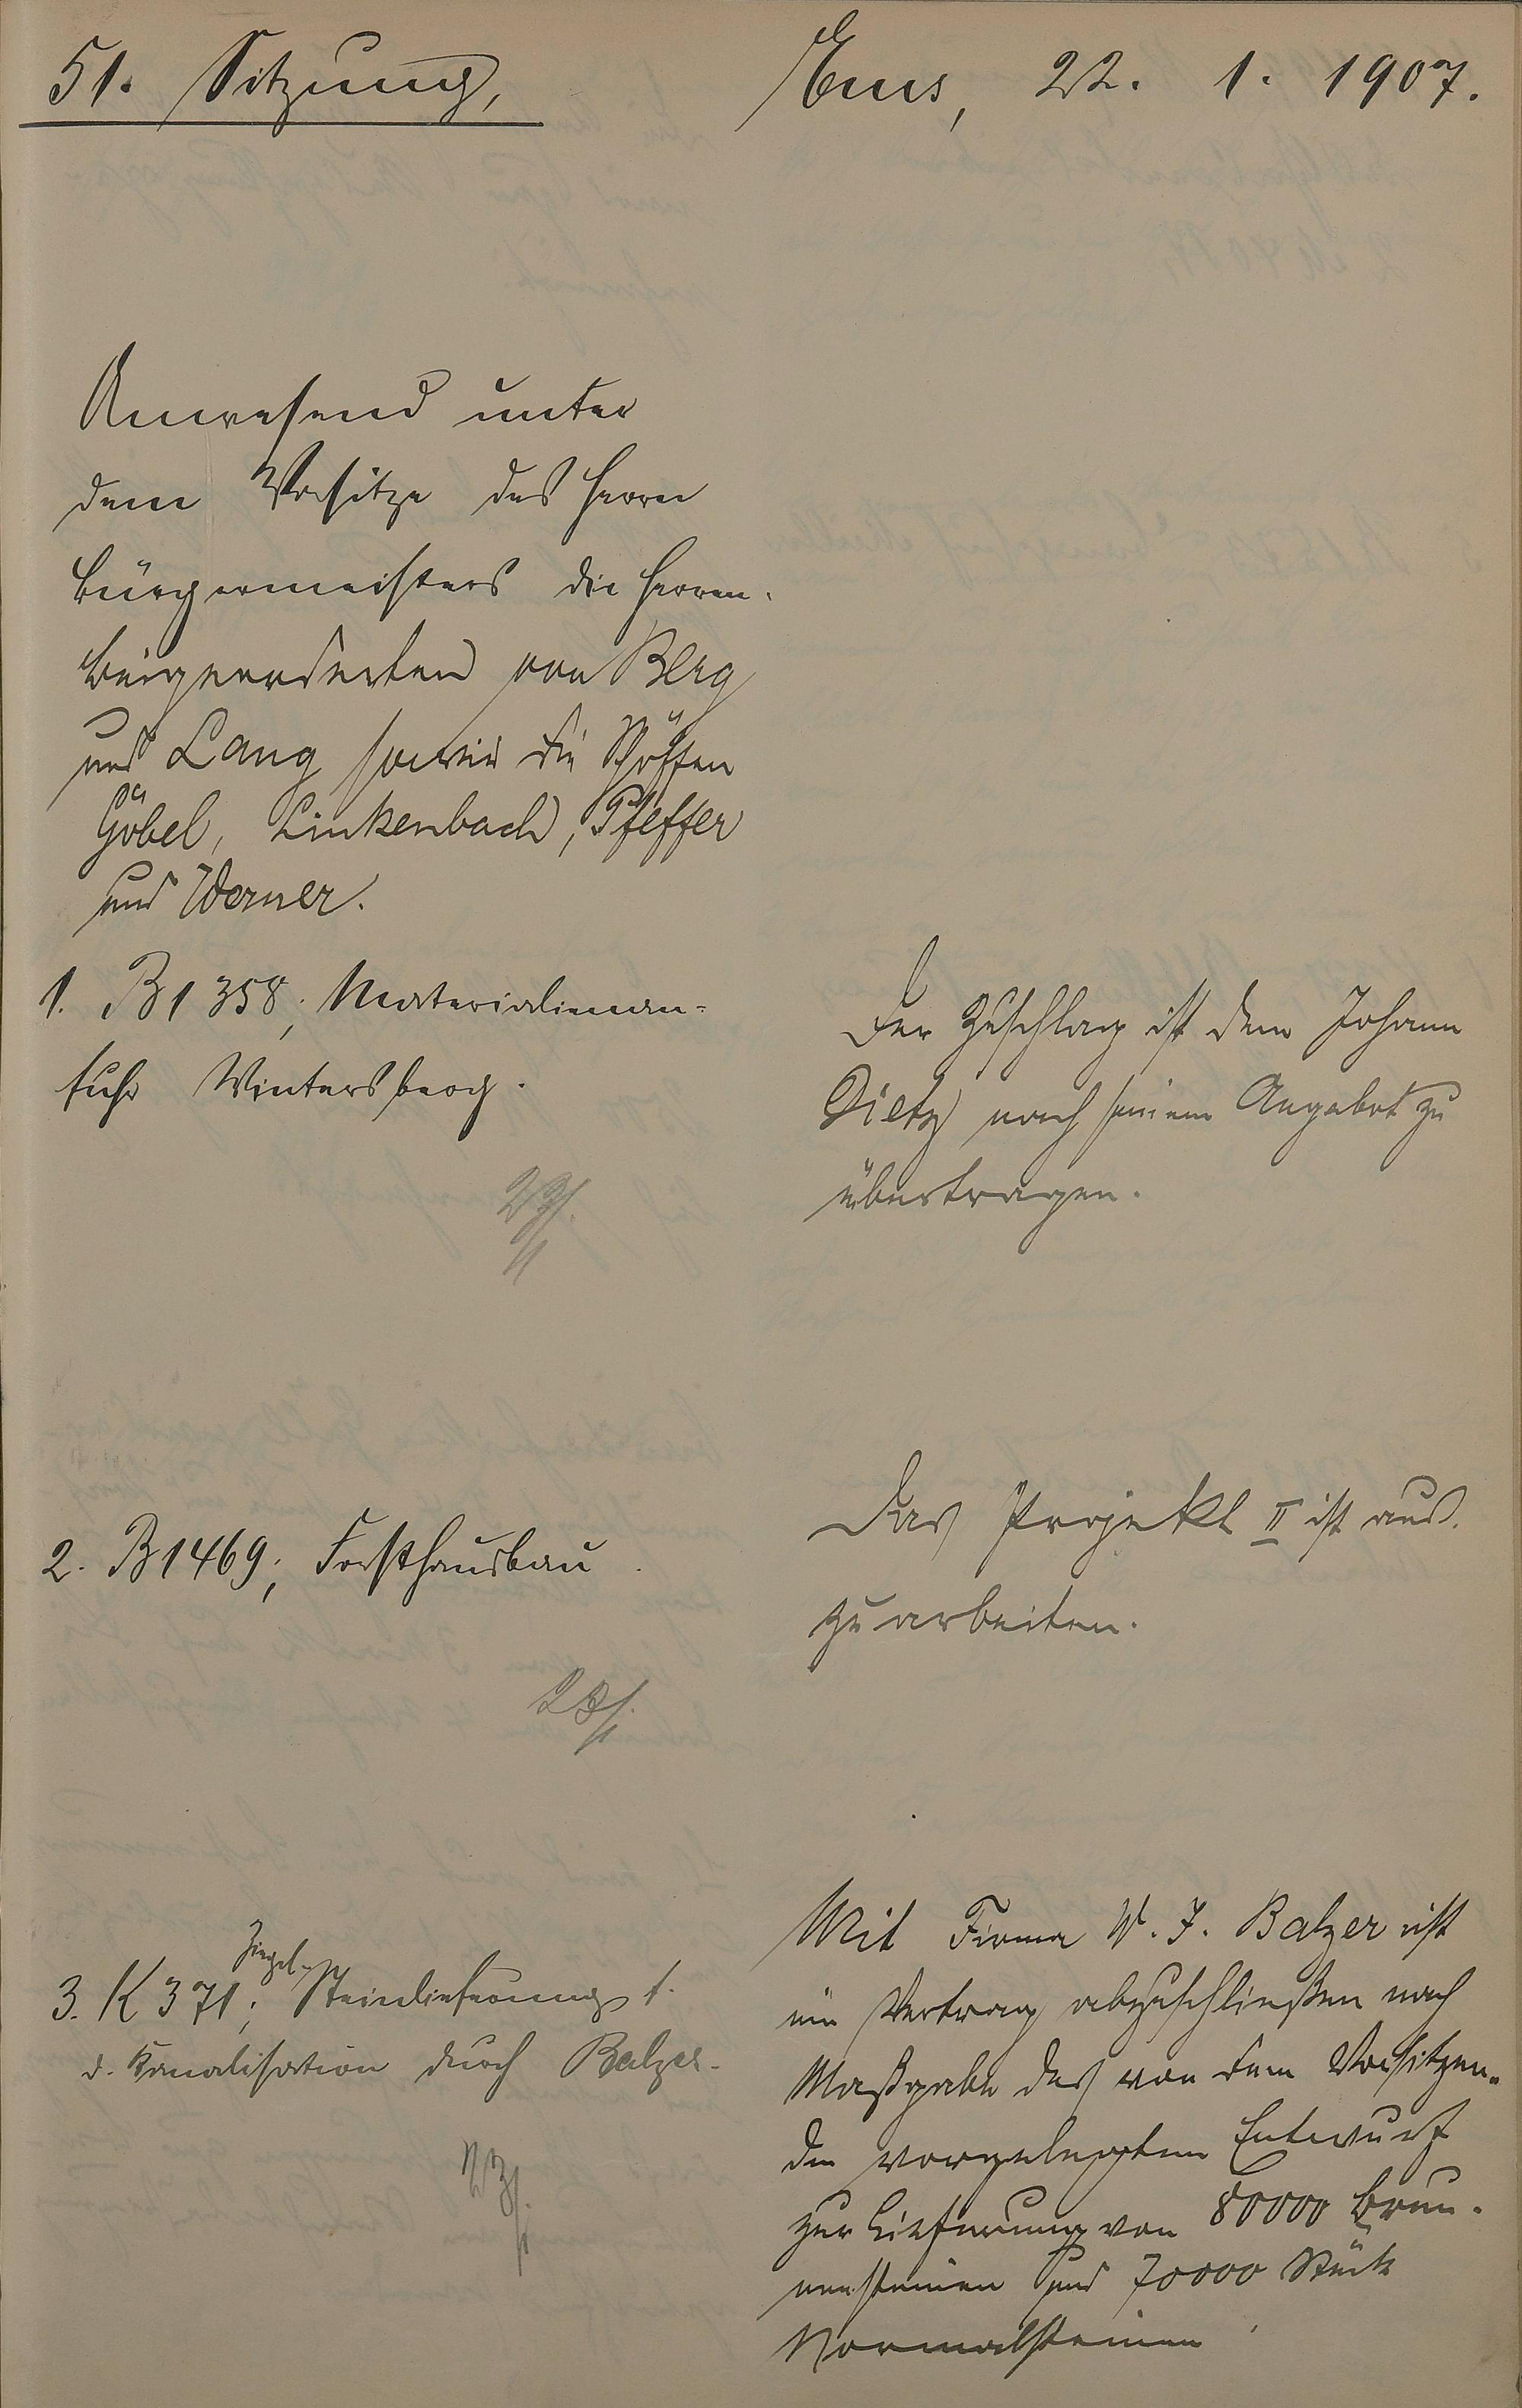 51. Sitzung,
Ems, 22. 1. 1907.
Anwesend unter
dem Vorsitze des Herrn
Bürgermeisters die Herren
Beigeordneten von Berg
und Lang sowie die Schöffen
Göbel, Linkenbach, Pfeffer
und Werner.
1. B 1358; Materialienan-
fuhr Wintersberg.
23/1.
Der Zuschlag ist dem Johann
Dietz nach seinem Angebot zu
übertragen.
2. B 1469; Forsthausbau.
23/1.
Das Projekt II ist aus-
zuarbeiten.
Ziegel-
3. K 371; Steinlieferung f.
d. Kanalisation durch Balzer.
23/1.
Mit Firma W. J. Balzer ist
ein Vertrag abzuschließen nach
Maßgabe des von dem Vorsitzen-
den vorgelegten Entwurf
zur Lieferung von 80000 Brun-
nensteinen und 70000 Stück
Normalsteinen.